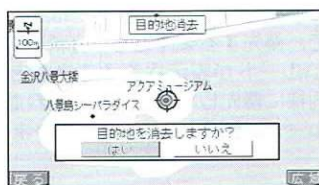 目的地消去
100m
金沢八景大橋
アクアミュージアム
八景島シーパラダイス
目的地を消去しますか?
はい
いいえ
戻る
広域